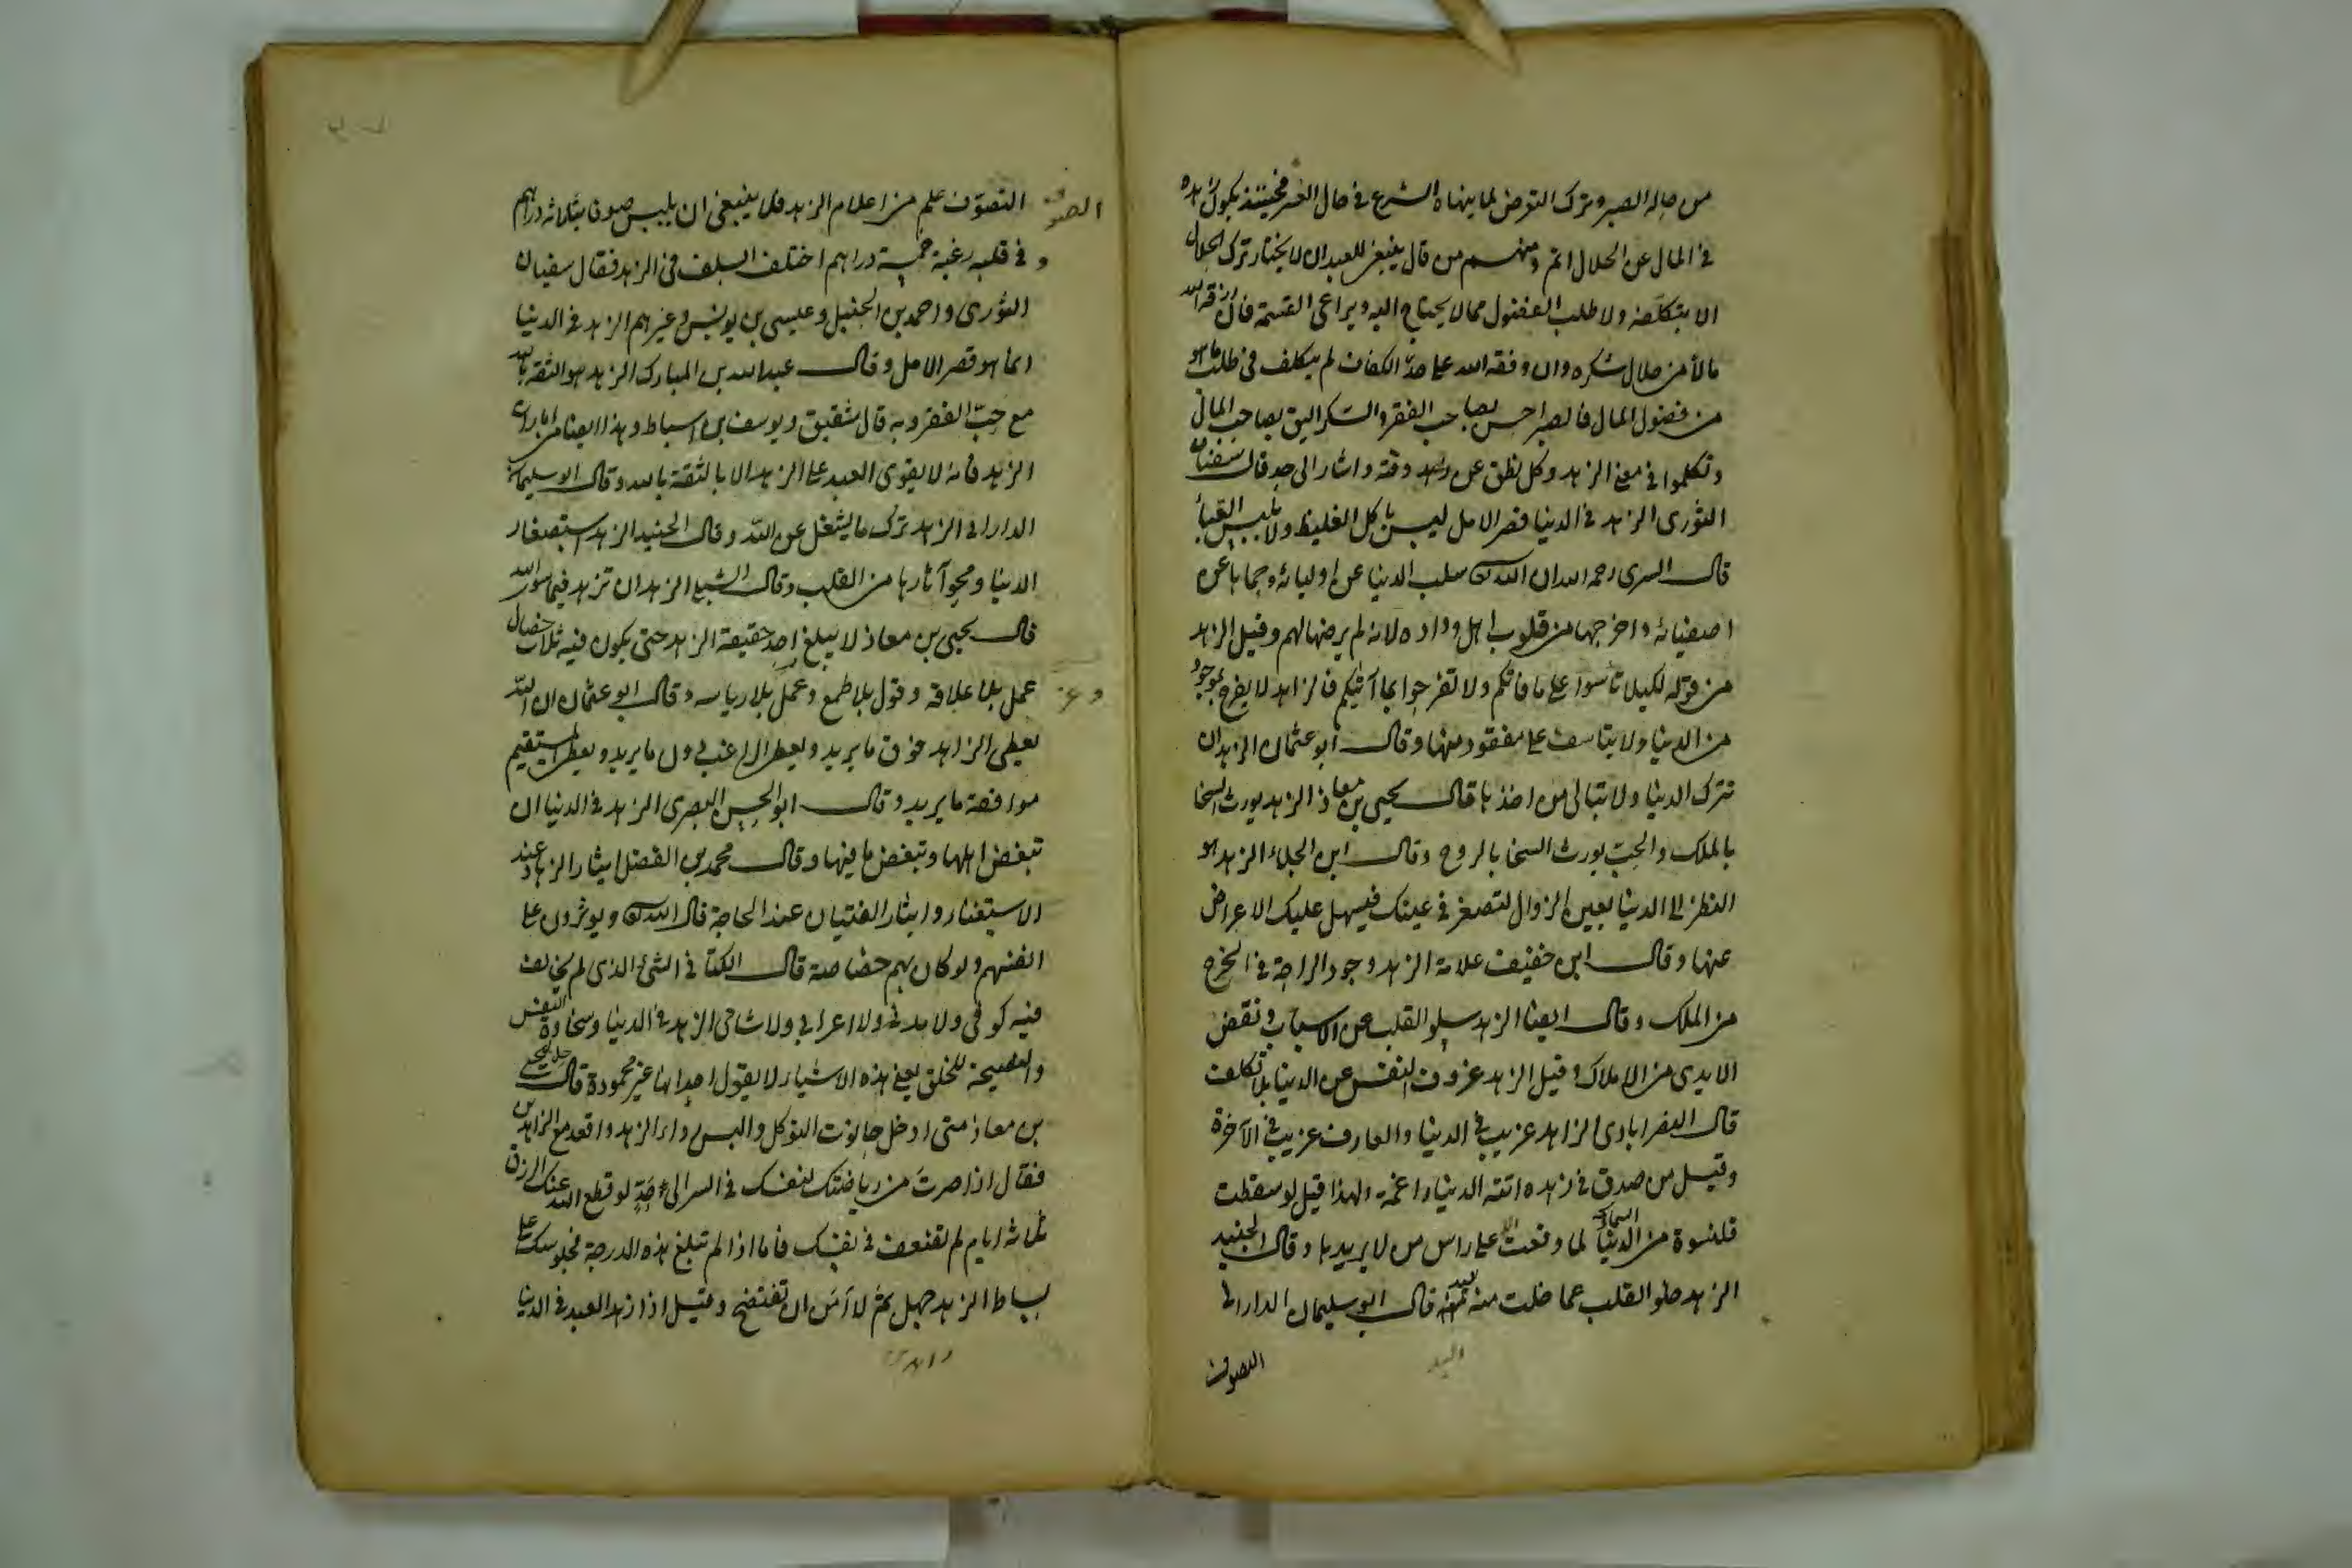 من حاله الصبر وترك التعرض لما ينهاه الشرع في حال العسر فحينئذ يكون زهده
في المال عن الحلال اتم ومنهم من قال ينبغى للعبد ان لا يختار ترك الحلال
الا بتكلفه ولا طلب الفضول مما لا يحتاج اليه ويراعى القسمة فان رزقه الله
مالا من حلال شكره وان وفقه الله على حدّ الكفاف لم يتكلف في طلب ما هو
من فضول المال فالصبر احسن بصاحب الفقر والشكر اليق بصاحب المال
وتكلموا في معنى الزهد وكل نطق عن وقته واشار الى حده قال سفيان
الثورى الزهد في الدنيا قصر الامل ليس باكل الغليظ ولا بلبس العباء
قال السرى رحمه الله ان الله سلب الدنيا عن اوليائه وحماها عن
اصفيائه واخرجها من قلوب اهل وداده لانه لم يرضها لهم وقيل الزهد
من قوله لكيلا تأسوا على ما فاتكم ولا تفرحوا بما آتيكم فالزاهد لا يفرح بموجود
من الدنيا ولا يتاسف على مفقود منها وقال ابو عثمان الزهد ان
تترك الدنيا ولا تبالى من اخذها قال يحيى بن معاذ الزهد يورث السخا
بالملك والحبّ يورث السخا بالروح وقال ابن الجلاء الزهد هو
النظر الى الدنيا بعين الزوال لتصغر في عينك فيسهل عليك الاعراض
عنها وقال ابن خفيف علامة الزهد وجود الراحة في الخروج
من الملك وقال ايضا الزهد سلو القلب عن الاسباب ونفض
الايدى من الاملاك وقيل الزهد عزوف النفس عن الدنيا بلا تكلف
قال النصرابادى الزاهد غريب في الدنيا والعارف غريب في الآخرة
وقيل من صدق في زهده اتته الدنيا راغمة ولهذا قيل لو سقطت
قلنسوة من السماء لما وقعت الا على راس من لا يريدها وقال الجنيد
الزهد خلو القلب عما خلت منه اليد قال ابو سليمان الدارانى
اليد
الصوف
الصوف
التصوّف علم من اعلام الزهد فلا ينبغى ان يلبس صوفا بثلاثة دراهم
وفي قلبه رغبة خمسة دراهم اختلف السلف في الزهد فقال سفيان
الثورى واحمد بن الحنبل وعيسى بن يونس وغيرهم الزهد في الدنيا
انما هو قصر الامل وقال عبد الله بن المبارك الزهد هو الثقة بالله
مع حبّ الفقر وبه قال شقيق ويوسف بن اسباط وهذا ايضا من امارات
الزهد فانه لا يقوى العبد على الزهد الا بالثقة بالله وقال ابو سليمان
الدارانى الزهد ترك ما يشغل عن الله وقال الجنيد الزهد استصغار
الدنيا ومحو آثارها من القلب وقال الشبلى الزهد ان تزهد فيما سوى الله
قال يحيى بن معاذ لا يبلغ احد حقيقة الزهد حتى يكون فيه ثلاث خصال
عمل بلا علاقة وقول بلا طمع وعمل بلا رياسه وقال ابو عثمان ان الله
وعز
يعطى الزاهد فوق ما يريد ويعطى الراغب دون ما يريد ويعطى المستقيم
موافقة ما يريد وقال ابو الحسن البصرى الزهد في الدنيا ان
تبغض اهلها وتبغض ما فيها وقال محمد بن الفضل ايثار الزهاد عند
الاستغناء وايثار الفتيان عند الحاجة قال الله ويوثرون على
انفسهم ولو كان بهم خصاصة قال الكتانى الشئ الذى لم يخالف
فيه كوفى ولا مدنى ولا اعرابى ولا شامى الزهد في الدنيا وسخاوة النفس
والنصيحة للخلق يعنى هذه الاشياء لا يقول احد انها غير محمودة قال رجل ليحيى
بن معاذ متى ادخل حانوت التوكل والبس رداء الزهد واقعد مع الزاهدين
فقال اذا صرت من رياضتك لنفسك في السر الى حدّ لو قطع الله عنك الرزق
ثلاثة ايام لم تضعف في نفسك فاما اذا لم تبلغ هذه الدرجة فجلوسك على
بساط الزهد جهل ثم لا آمن ان تفتضح وقيل اذا زهد العبد في الدنيا